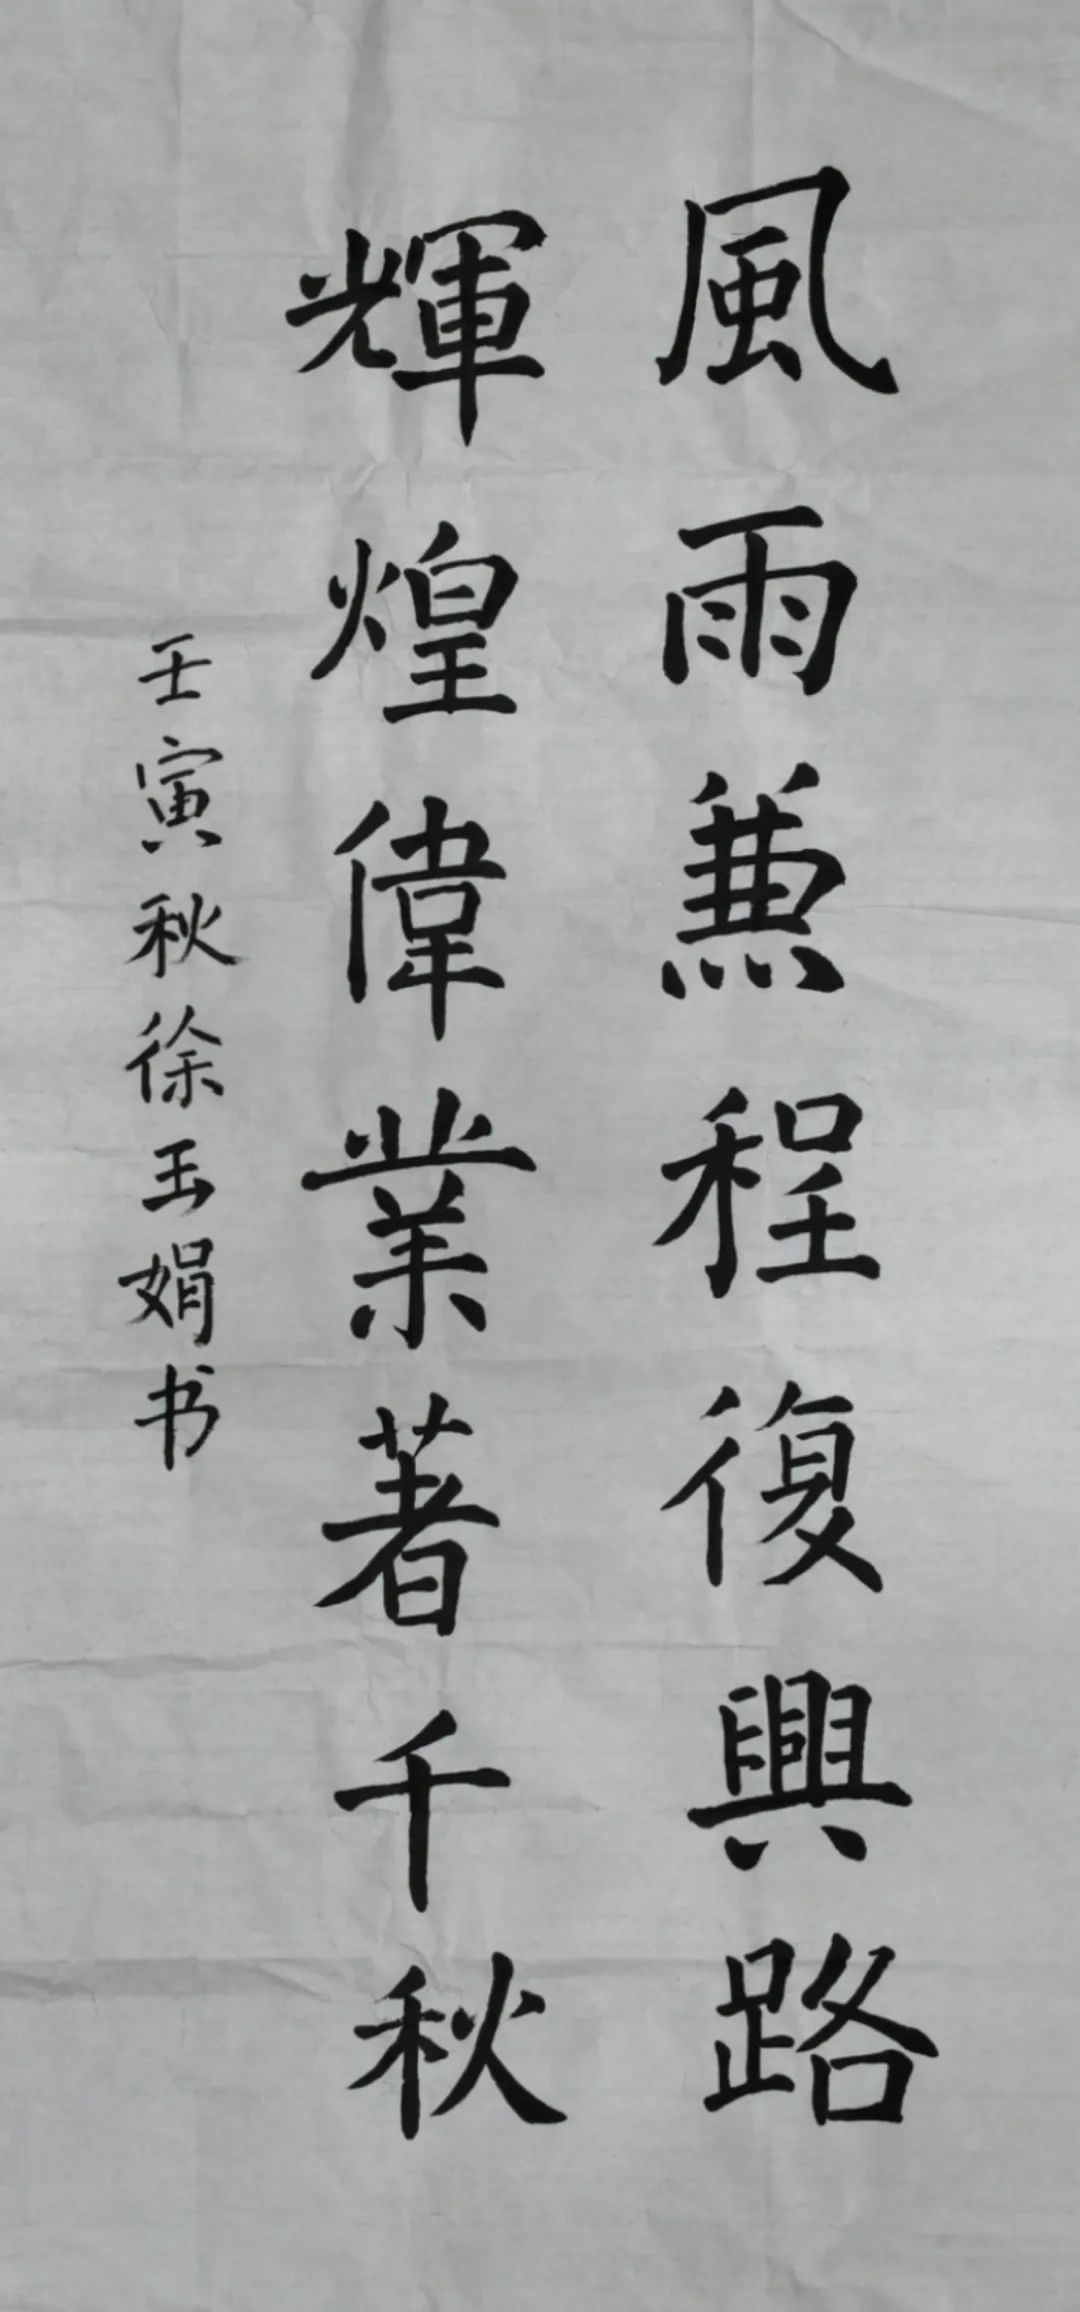 風雨兼程復興路
輝煌偉業著千秋
壬寅秋徐玉娟书